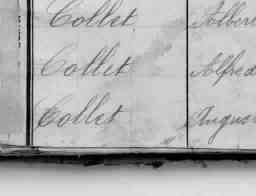 Collet Albert
Collet Alfred
Collet August